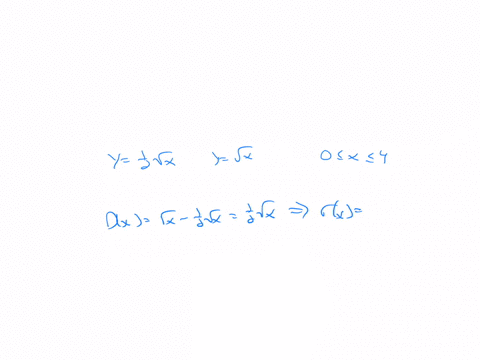 y = 1/2 √x    y = √x    0 ≤ x ≤ 4
D(x) = √x − 1/2 √x = 1/2 √x ⇒ r(x) =